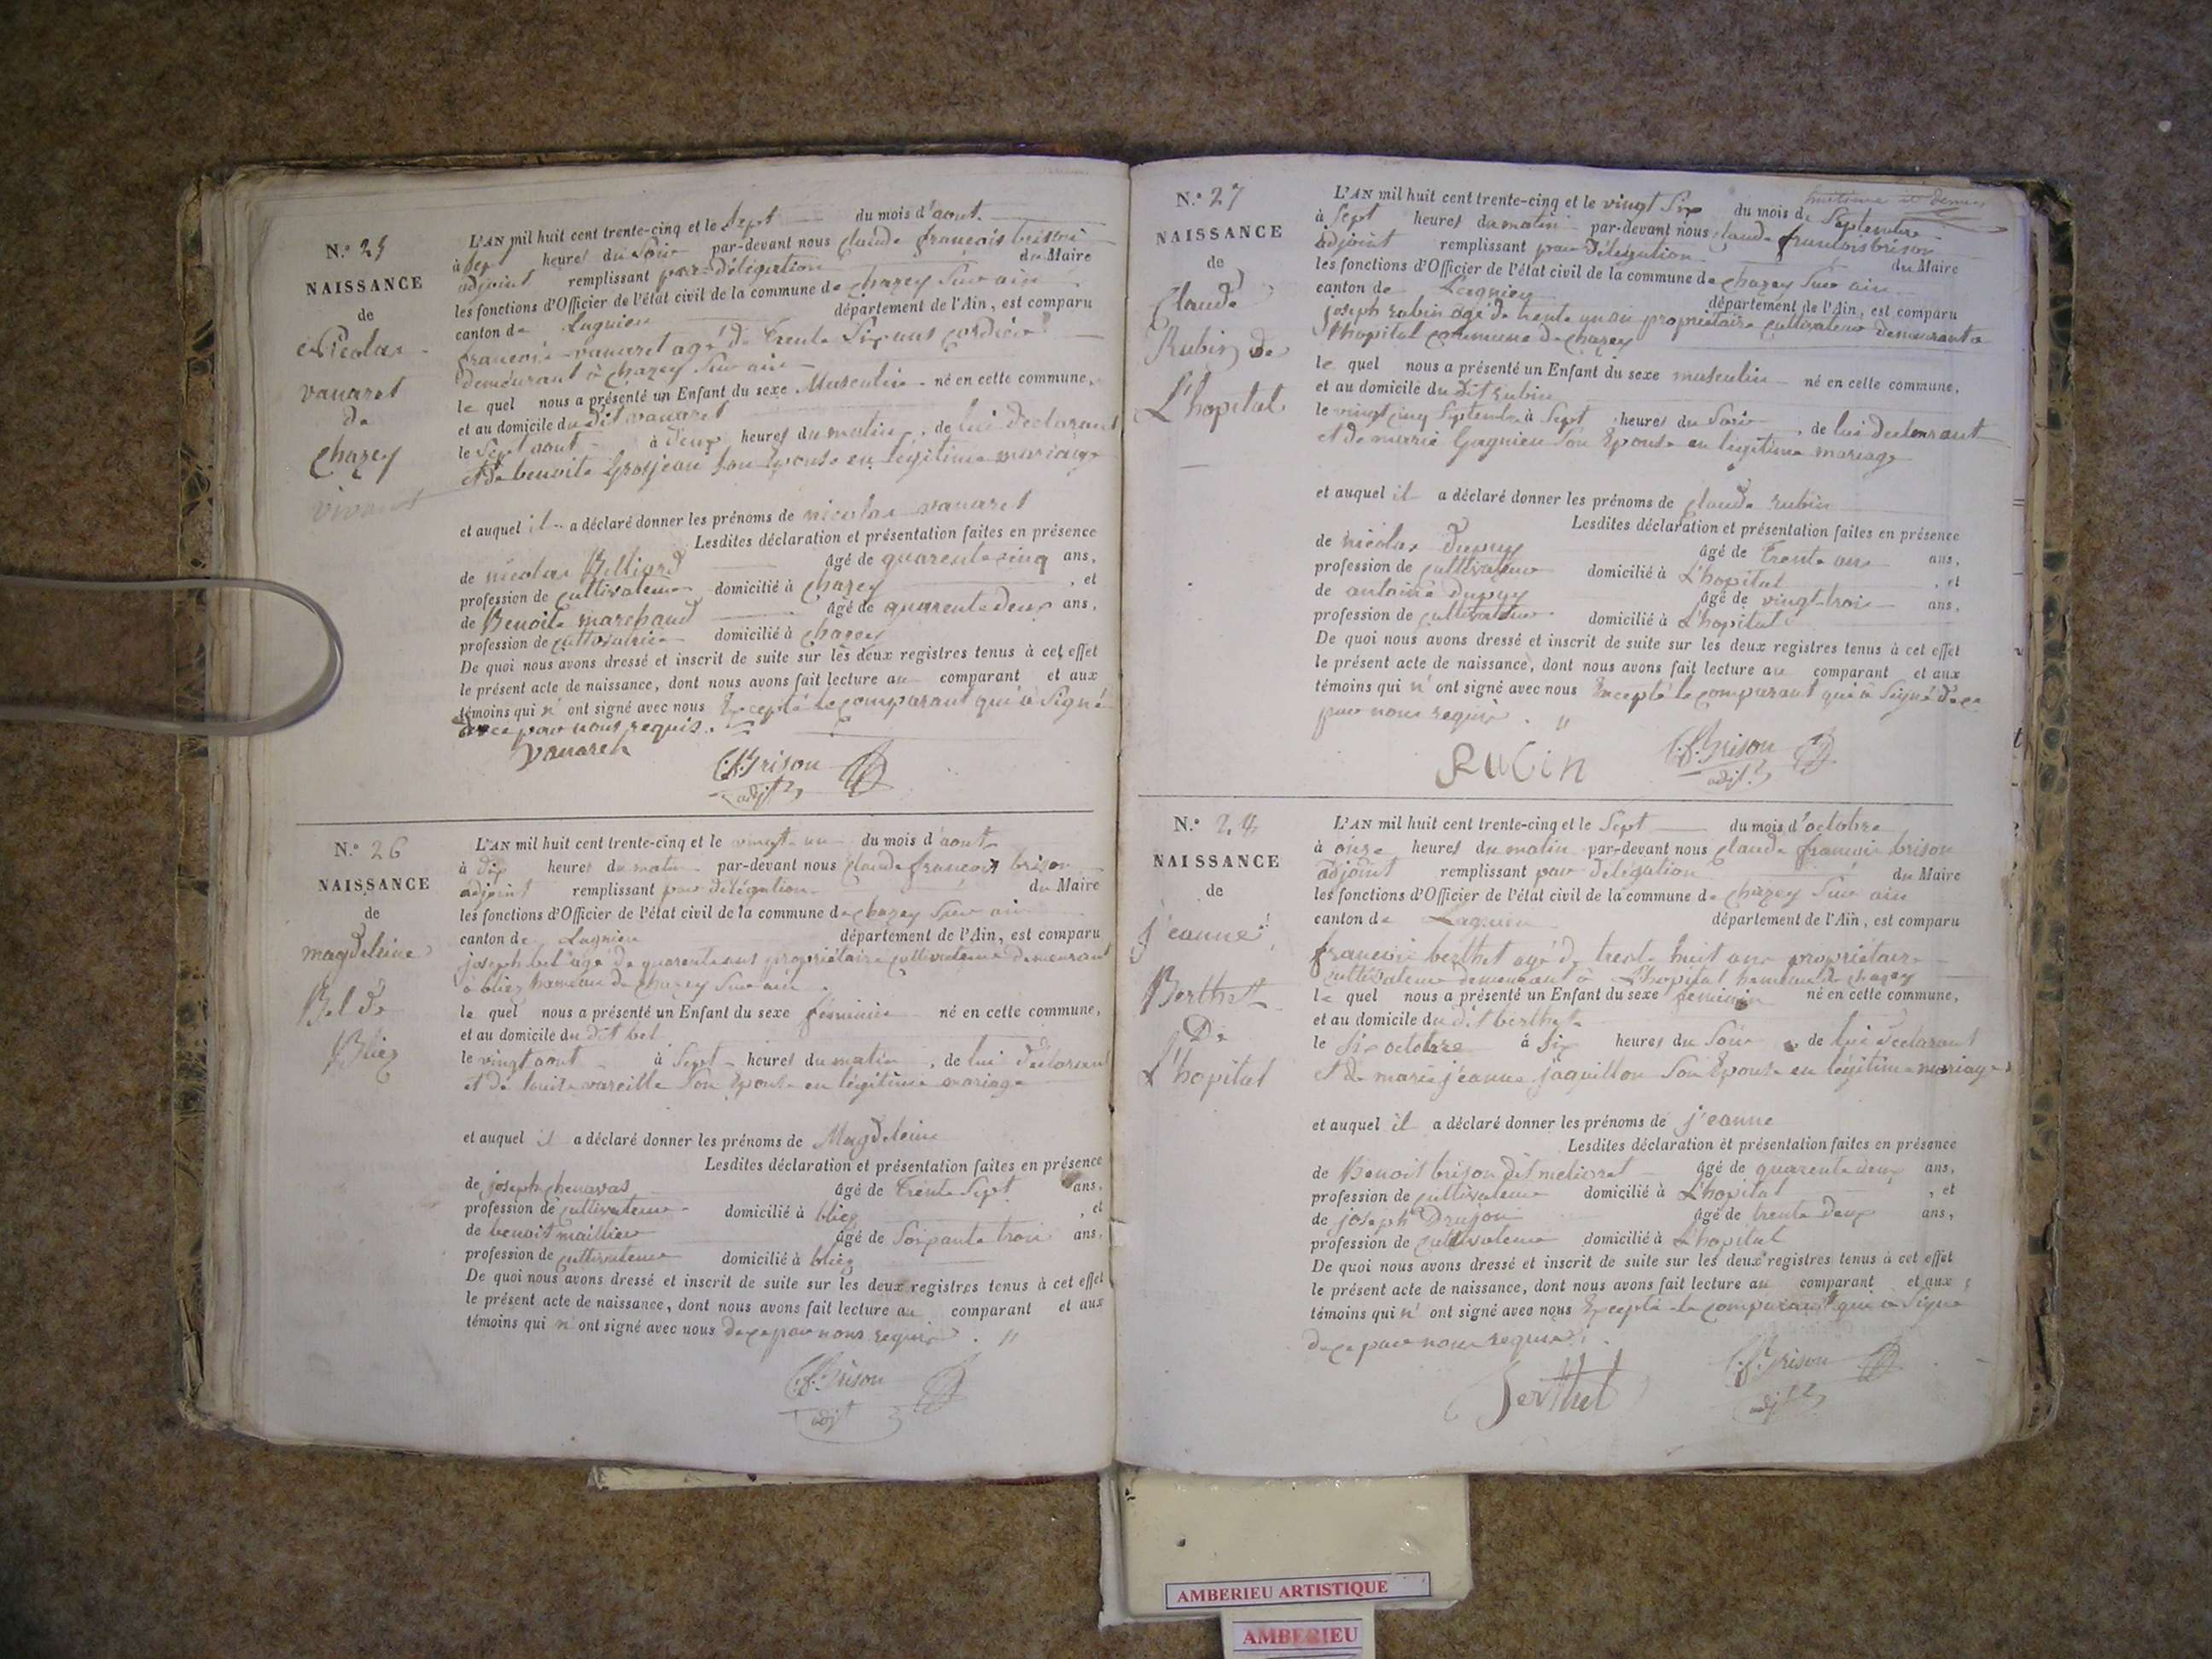 N.° 25
NAISSANCE
de
Nicolas
vanaret
de
Chazey
vivant
L'AN mil huit cent trente-cinq et le Sept du mois d'aout
à Sept heures du Soir par-devant nous Claude françois brison
adjoint remplissant par délégation du Maire
les fonctions d'Officier de l'état civil de la commune de chazey Sur ain
canton de Lagnieu département de l'Ain, est comparu
françois vanaret agé de trente Six ans cordier
demeurant à chazey Sur ain
le quel nous a présenté un Enfant du sexe Masculin né en cette commune,
et au domicile du dit vanaret
le Sept aout à deux heures du matin, de lui déclarant
et de benoite Grosjean Son Epouse en légitime mariage
et auquel il a déclaré donner les prénoms de nicolas vanaret
Lesdites déclaration et présentation faites en présence
de nicolas Billiard âgé de quarente cinq ans,
profession de cultivateur domicilié à chazey, et
de Benoite marchand âgé de quarente deux ans,
profession de cultivatrice domicilié à chazey
De quoi nous avons dressé et inscrit de suite sur les deux registres tenus à cet effet
le présent acte de naissance, dont nous avons fait lecture au comparant et aux
témoins qui n'ont signé avec nous Excepté le comparant qui à Signé
de ce par nous requis.
Vanaret
C.f. Brison
adjt
N.° 26
NAISSANCE
de
magdeleine
Bel de
Bliez
L'AN mil huit cent trente-cinq et le vingt un du mois d'aout
à dix heures du matin par-devant nous Claude françois brison
adjoint remplissant par délégation du Maire
les fonctions d'Officier de l'état civil de la commune de chazey Sur ain
canton de Lagnieu département de l'Ain, est comparu
joseph bel agé de quarente ans propriétaire cultivateur demeurant
à bliez hameau de chazey Sur ain
le quel nous a présenté un Enfant du sexe féminin né en cette commune,
et au domicile du dit bel
le vingt aout à Sept heures du matin, de lui déclarant
et de louise vareille Son Epouse en légitime mariage
et auquel il a déclaré donner les prénoms de Magdeleine
Lesdites déclaration et présentation faites en présence
de joseph chenavas âgé de trente Sept ans,
profession de cultivateur domicilié à bliez, et
de benoit maillier âgé de Soixante trois ans,
profession de cultivateur domicilié à bliez
De quoi nous avons dressé et inscrit de suite sur les deux registres tenus à cet effet
le présent acte de naissance, dont nous avons fait lecture au comparant et aux
témoins qui n'ont signé avec nous de ce par nous requis. "
C.f. Brison
adjt
N.° 27
NAISSANCE
de
Claude
Rubin de
L'hopital
L'AN mil huit cent trente-cinq et le vingt Six du mois de Septembre
à Sept heures du matin par-devant nous Claude françois brison
adjoint remplissant par délégation du Maire
les fonctions d'Officier de l'état civil de la commune de chazey Sur ain
canton de Lagnieu département de l'Ain, est comparu
joseph rubin agé de trente un an propriétaire cultivateur demeurant a
l'hopital commune de chazey
le quel nous a présenté un Enfant du sexe masculin né en cette commune,
et au domicile du dit rubin
le vingt cinq Septembre à Sept heures du Soir, de lui déclarant
et de marie Gagnieu Son Epouse en légitime mariage
et auquel il a déclaré donner les prénoms de Claude rubin
Lesdites déclaration et présentation faites en présence
de nicolas Dupuy âgé de trente ans ans,
profession de cultivateur domicilié à L'hopital, et
de antoine dupuy âgé de vingt-trois ans,
profession de cultivateur domicilié à L'hopital
De quoi nous avons dressé et inscrit de suite sur les deux registres tenus à cet effet
le présent acte de naissance, dont nous avons fait lecture au comparant et aux
témoins qui n'ont signé avec nous Excepté le comparant qui à Signé de ce
par nous requis. "
RUbin
C.f. Brison
adjt
N.° 28
NAISSANCE
de
jeanne
Berthet
De
L'hopital
L'AN mil huit cent trente-cinq et le Sept du mois d'octobre
à onze heures du matin par-devant nous Claude françois brison
adjoint remplissant par délégation du Maire
les fonctions d'Officier de l'état civil de la commune de chazey Sur ain
canton de Lagnieu département de l'Ain, est comparu
françois berthet agé de trente huit ans propriétaire
cultivateur demeurant à L'hopital hameau de chazey
le quel nous a présenté un Enfant du sexe feminin né en cette commune,
et au domicile du dit berthet
le Six octobre à Six heures du Soir de lui déclarant
et de marie jeanne jaquillon Son Epouse en légitime mariage
et auquel il a déclaré donner les prénoms de jeanne
Lesdites déclaration et présentation faites en présence
de Benoit brison dit âgé de quarente deux ans,
profession de cultivateur domicilié à L'hopital, et
de joseph Drujon âgé de trente deux ans,
profession de cultivateur domicilié à L'hopital
De quoi nous avons dressé et inscrit de suite sur les deux registres tenus à cet effet
le présent acte de naissance, dont nous avons fait lecture au comparant et aux
témoins qui n'ont signé avec nous Excepté le comparant qui à Signé
de ce par nous requis.
Berthet
C.f. Brison
adjt
AMBERIEU ARTISTIQUE
AMBERIEU